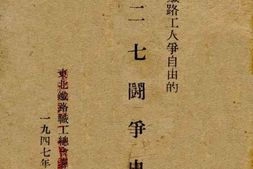 鐵路工人爭自由的
二七鬪爭史
東北鐵路職工總會
一九四七年